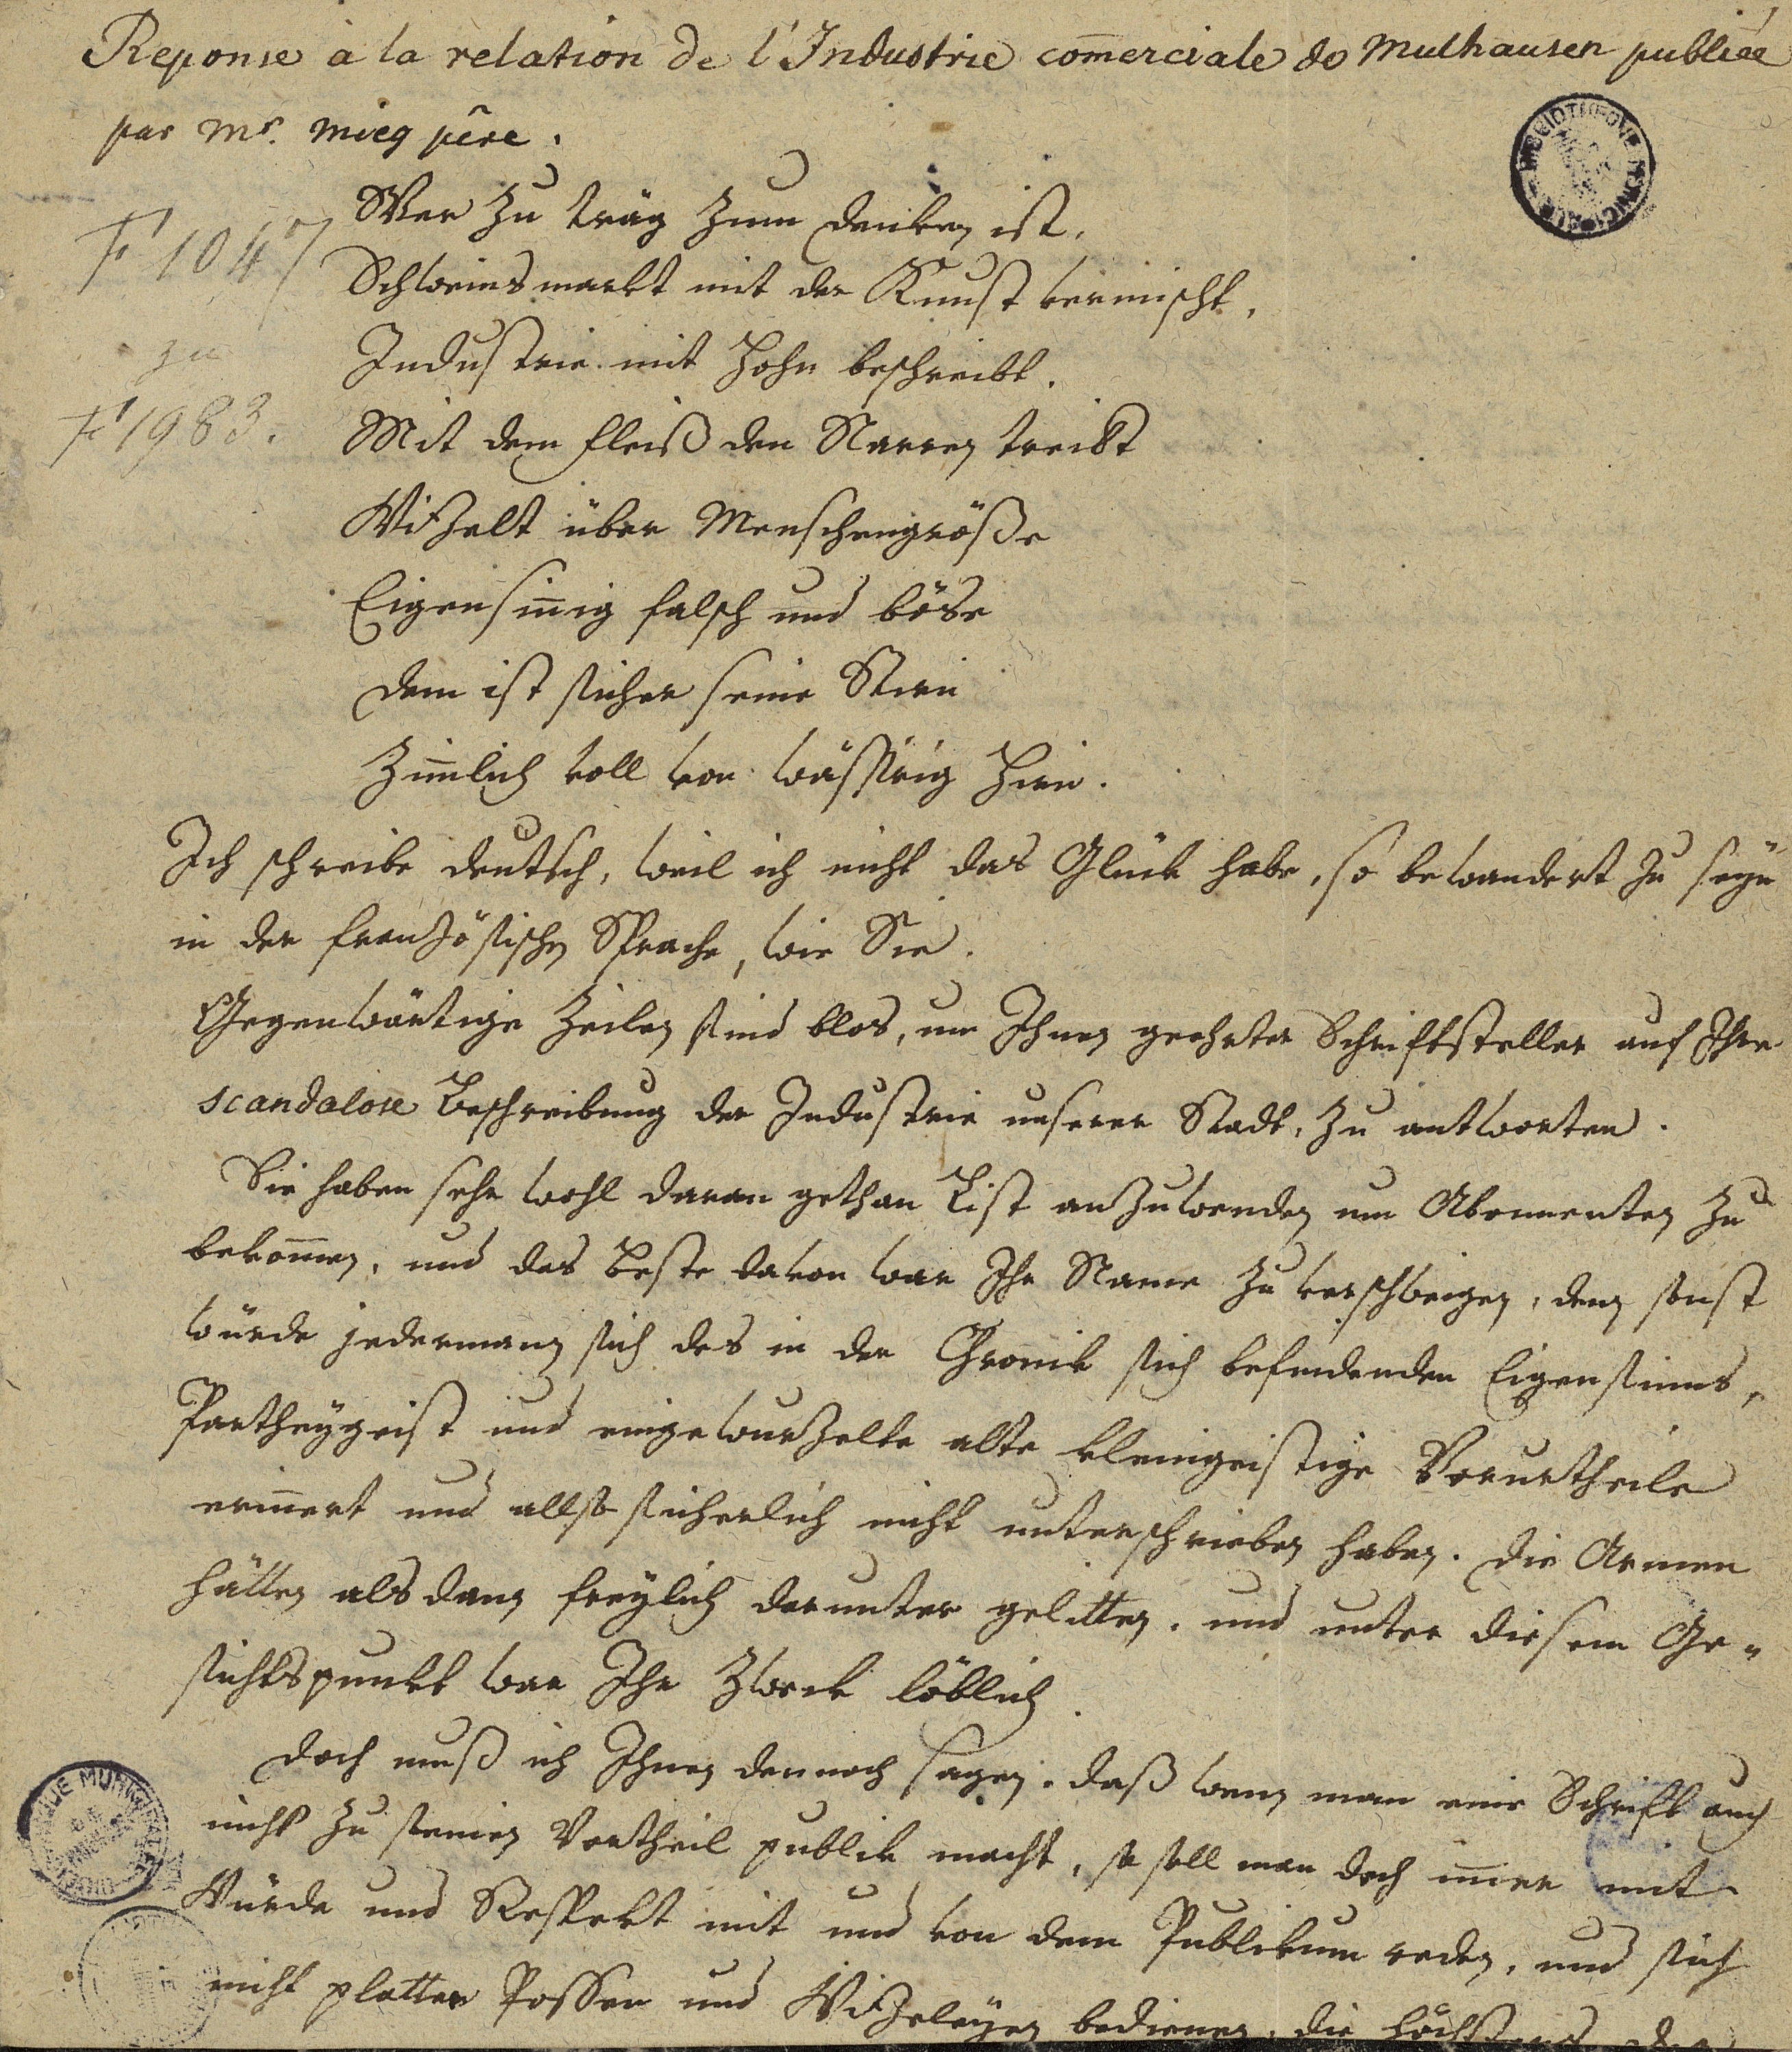 Reponse à la relation de l'Industrie com̄erciale de Mulhausen publiée
par Mr. Mieg pêre.
F 1047
zu
F 1983.
Wer zu träg zum denken ist,
Schweinsmarkt mit der Kunst vermischt,
Industrie mit Hohn beschreibt.
Mit dem Fleiß den Narren treibt
Witzelt über Menschengröße
Eigensin̄ig falsch und böse
dem ist sicher seine Stirn
Zim̄lich voll von wässrig Hirn.
Ich schreibe deutsch, weil ich nicht das Glück habe, so bewandert zu seyn
in der französischen Sprache, wie Sie.
Gegenwärtige Zeilen sind blos, um Ihnen geehrter Schriftsteller auf Ihre
scandalose Beschreibung der Industrie unserer Stadt, zu antworten.
Sie haben sehr wohl daran gethan List anzuwenden um Abonnenten zu
bekom̄en, und das Beste davon war Ihr Name zu verschweigen, denn sonst
würde jedermann sich des in der Chronik sich befindenden Eigensinns,
Partheygeist und eingewurzelte alte kleingeistige Vorurtheile
erin̄ert und allso sicherlich nicht unterschrieben haben. die Armen
hätten alsdann freylich darunter gelitten, und unter diesem Ge-
sichtspunkt war Ihr Zweck löblich.
doch muß ich Ihnen dennoch sagen, daß wenn man eine Schrift auch
nicht zu seinen Vortheil publik macht, so soll man doch im̄er mit
Würde und Respekt mit und von dem Publikum reden, und sich
nicht platter Possen und Witzeleyen bedienen, die höchstens